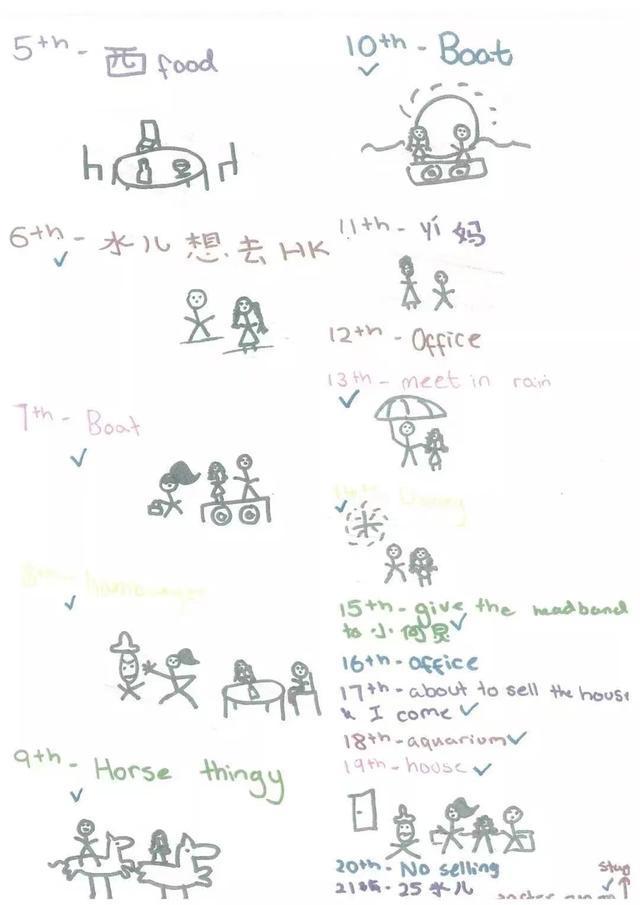 5th - 西 food
6th - 水儿想去 HK
7th - Boat
8th - hamburger
9th - Horse thingy
10th - Boat
11th - yí 妈
12th - Office
13th - meet in rain
14th -
15th - give the headband
to 小何炅
16th - office
17th - about to sell the house
& I come
18th - aquarium
19th - house
20th - No selling
21 - 25 水儿